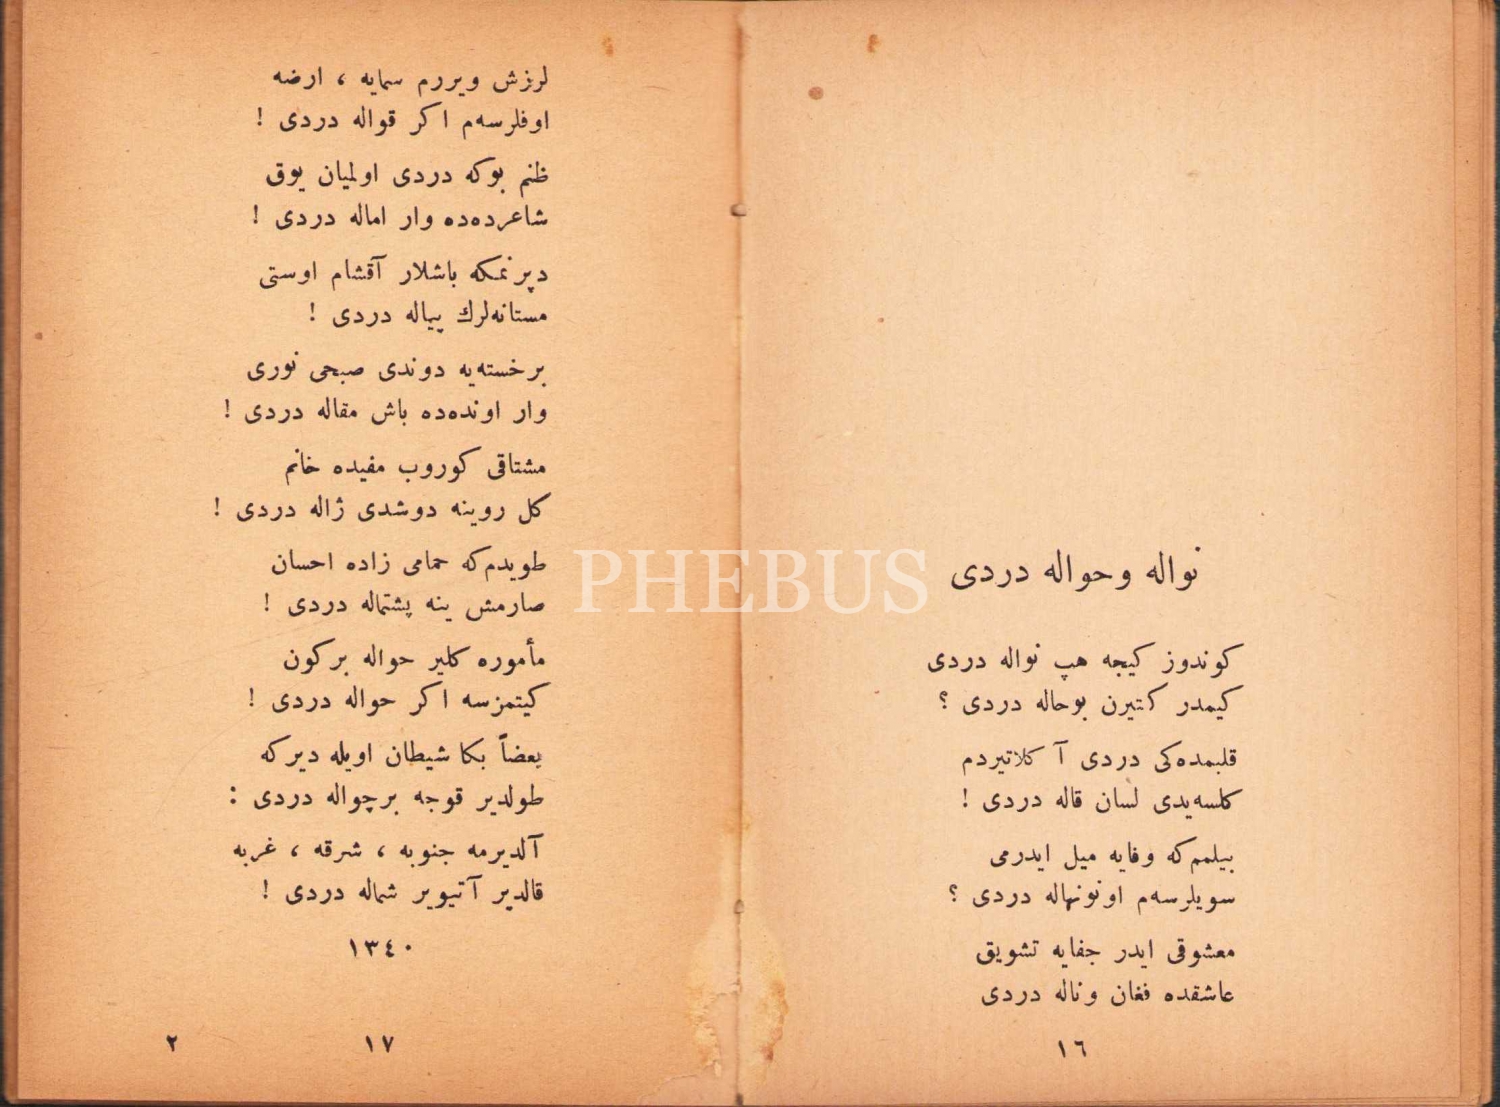 نواله وحواله دردی
كوندوز كیجه هپ نواله دردی
كیمدر كتیرن بوحاله دردی ؟
قلبمده‌كی دردی آ كلاتیردم
كلسه‌یدی لسان قاله دردی !
بیلمم‌كه وفایه میل ایدرمی
سویلرسه‌م اونونهاله دردی ؟
معشوقی ایدر جفایه تشویق
عاشقده فغان وناله دردی
١٦
لرزش ویررم سمایه ، ارضه
اوفلرسه‌م اكر قواله دردی !
ظنم بوكه دردی اولمیان یوق
شاعرده‌ده وار اماله دردی !
دپرنمكه باشلار آقشام اوستی
مستانه‌لرك پیاله دردی !
برخسته‌یه دوندی صبحی نوری
وار اونده‌ده باش مقاله دردی !
مشتاقی كوروب مفیده خانم
كل روینه دوشدی ژاله دردی !
طویدم‌كه حمامی زاده احسان
صارمش ینه پشتماله دردی !
مأموره كلیر حواله بركون
كیتمزسه اكر حواله دردی !
بعضاً بكا شیطان اویله دیركه
طولدیر قوجه برچواله دردی :
آلدیرمه جنوبه ، شرقه ، غربه
قالدیر آتیویر شماله دردی !
١٣٤٠
١٧
٢
PHEBUS